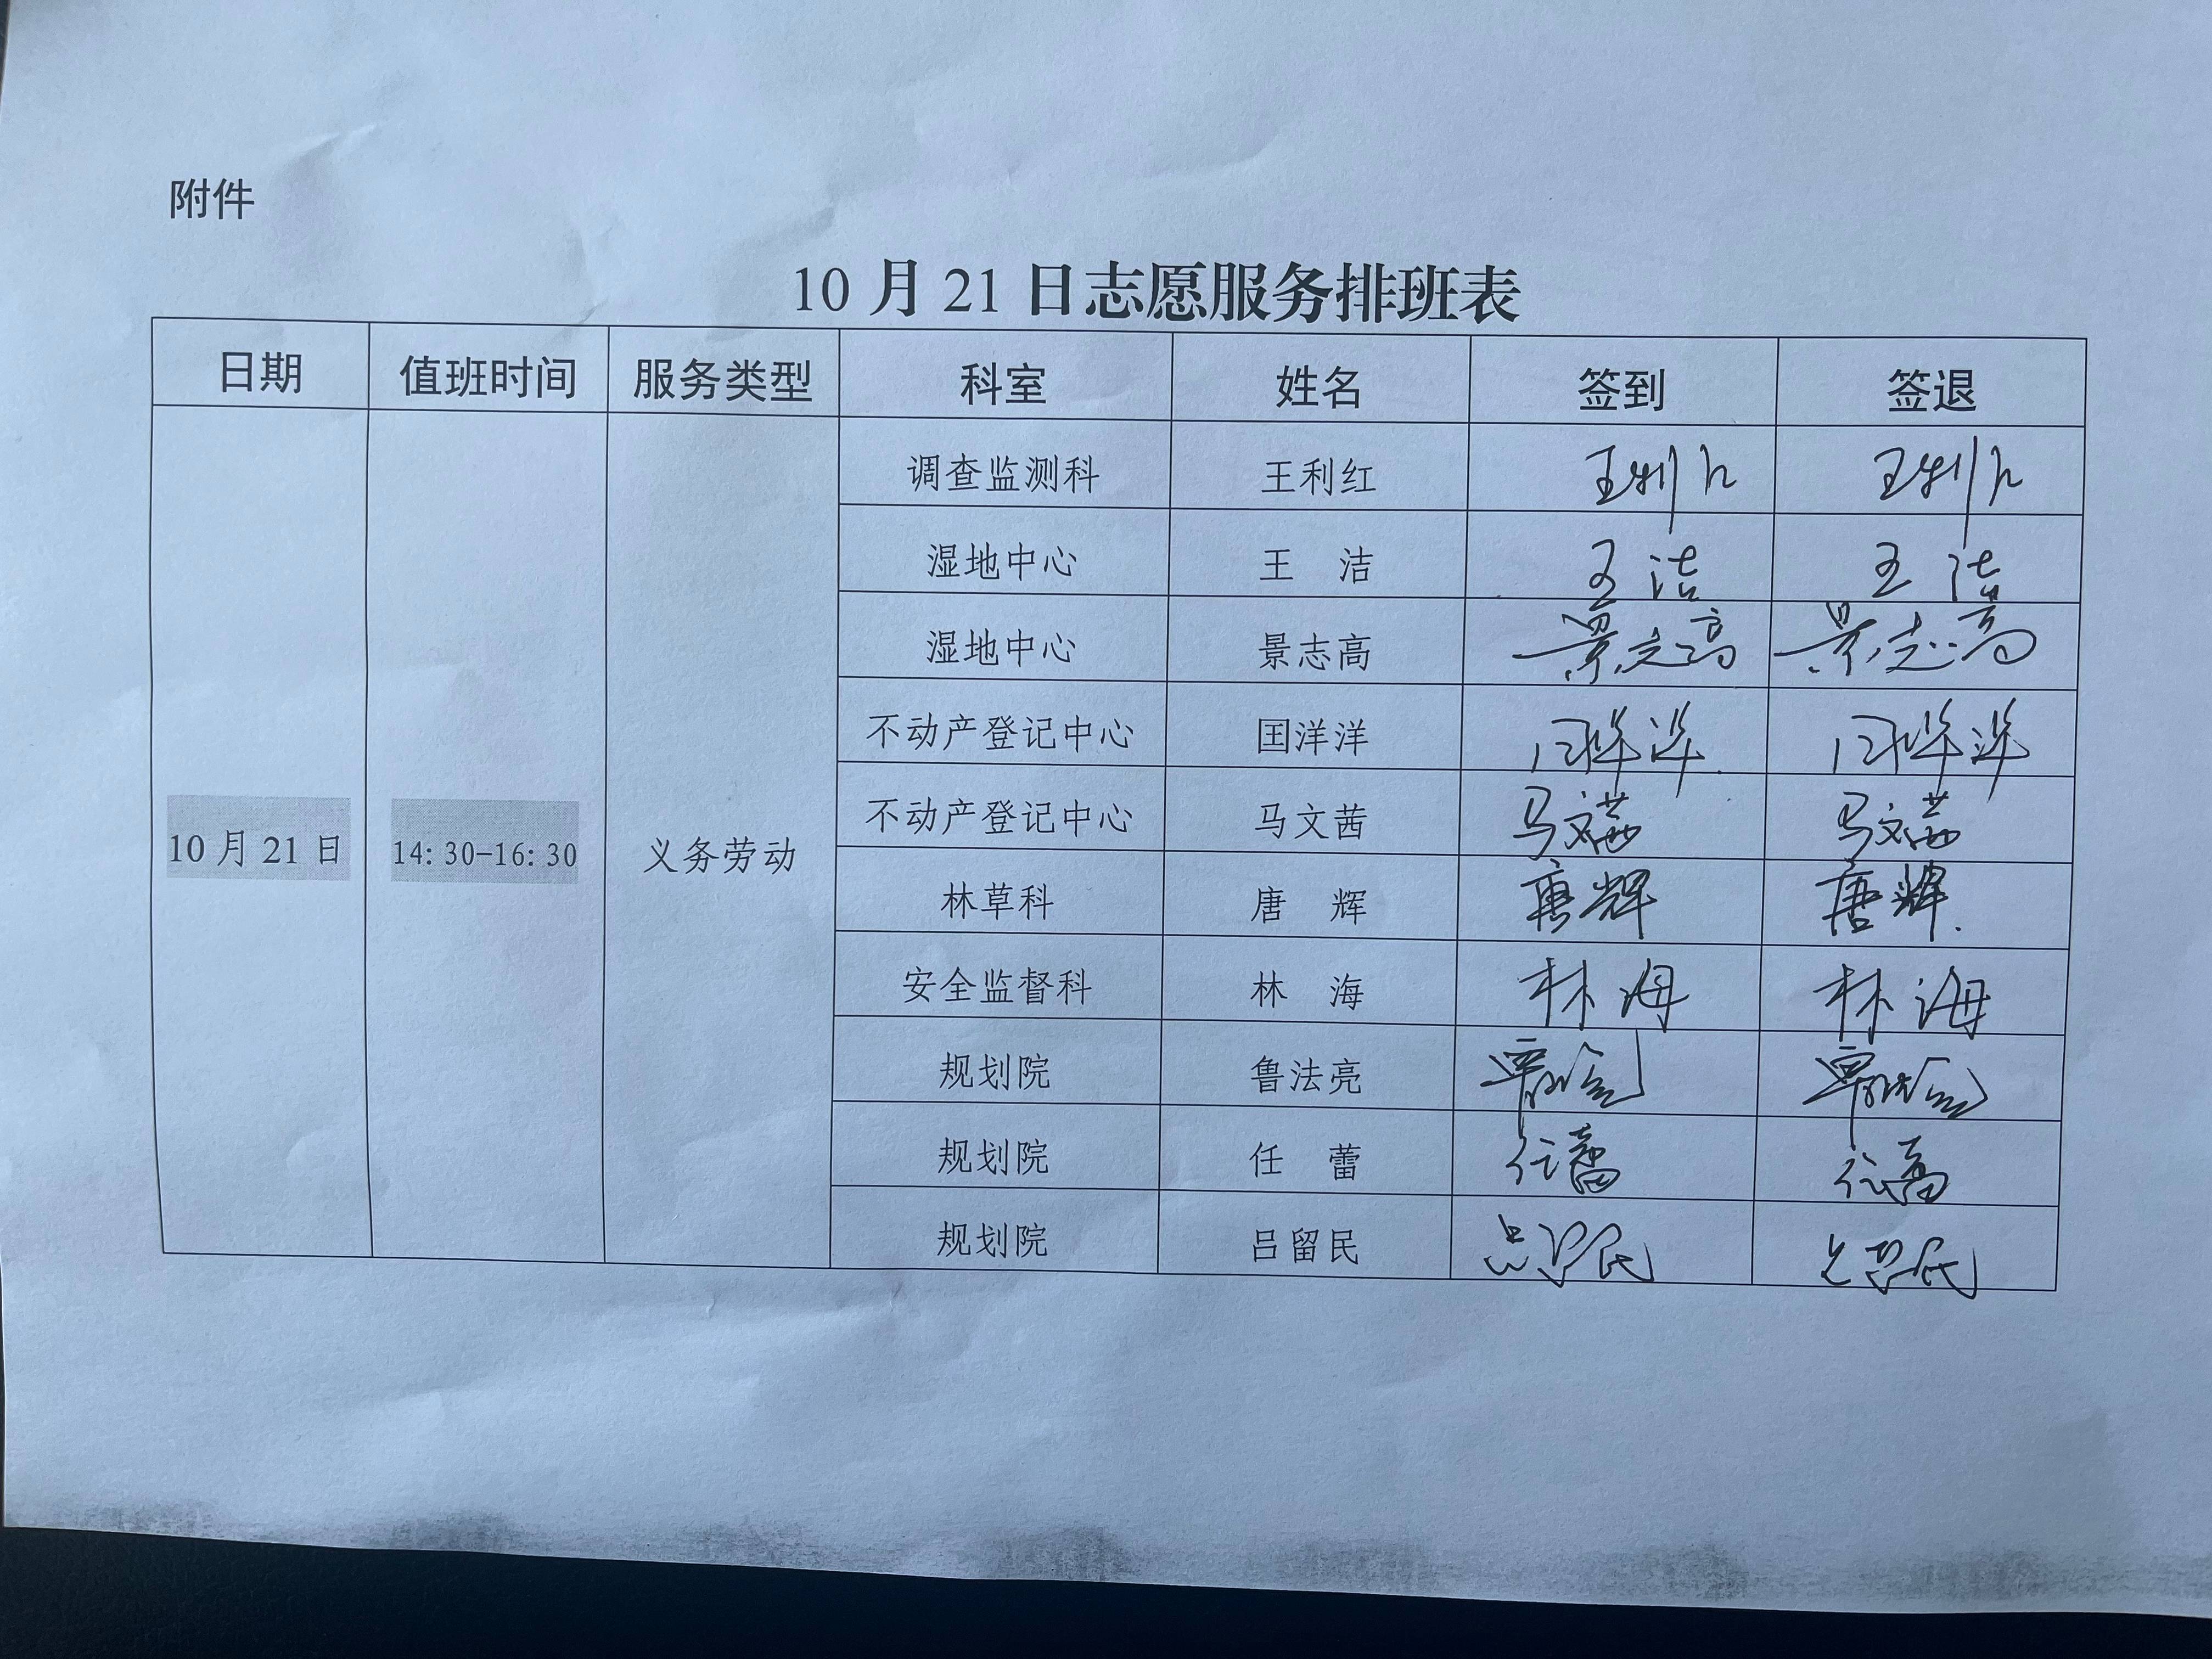 附件
10 月 21 日志愿服务排班表
日期 值班时间 服务类型 科室 姓名 签到 签退
10 月 21 日 14: 30-16: 30 义务劳动
调查监测科 王利红 王利红 王利红
湿地中心 王 洁 王 洁 王 洁
湿地中心 景志高 景志高 景志高
不动产登记中心 国洋洋
不动产登记中心 马文茜 马文茜 马文茜
林草科 唐 辉 唐辉 唐辉.
安全监督科 林 海 林海 林海
规划院 鲁法亮 鲁法亮 鲁法亮
规划院 任 蕾 任蕾 任蕾
规划院 吕留民 吕留民 吕留民